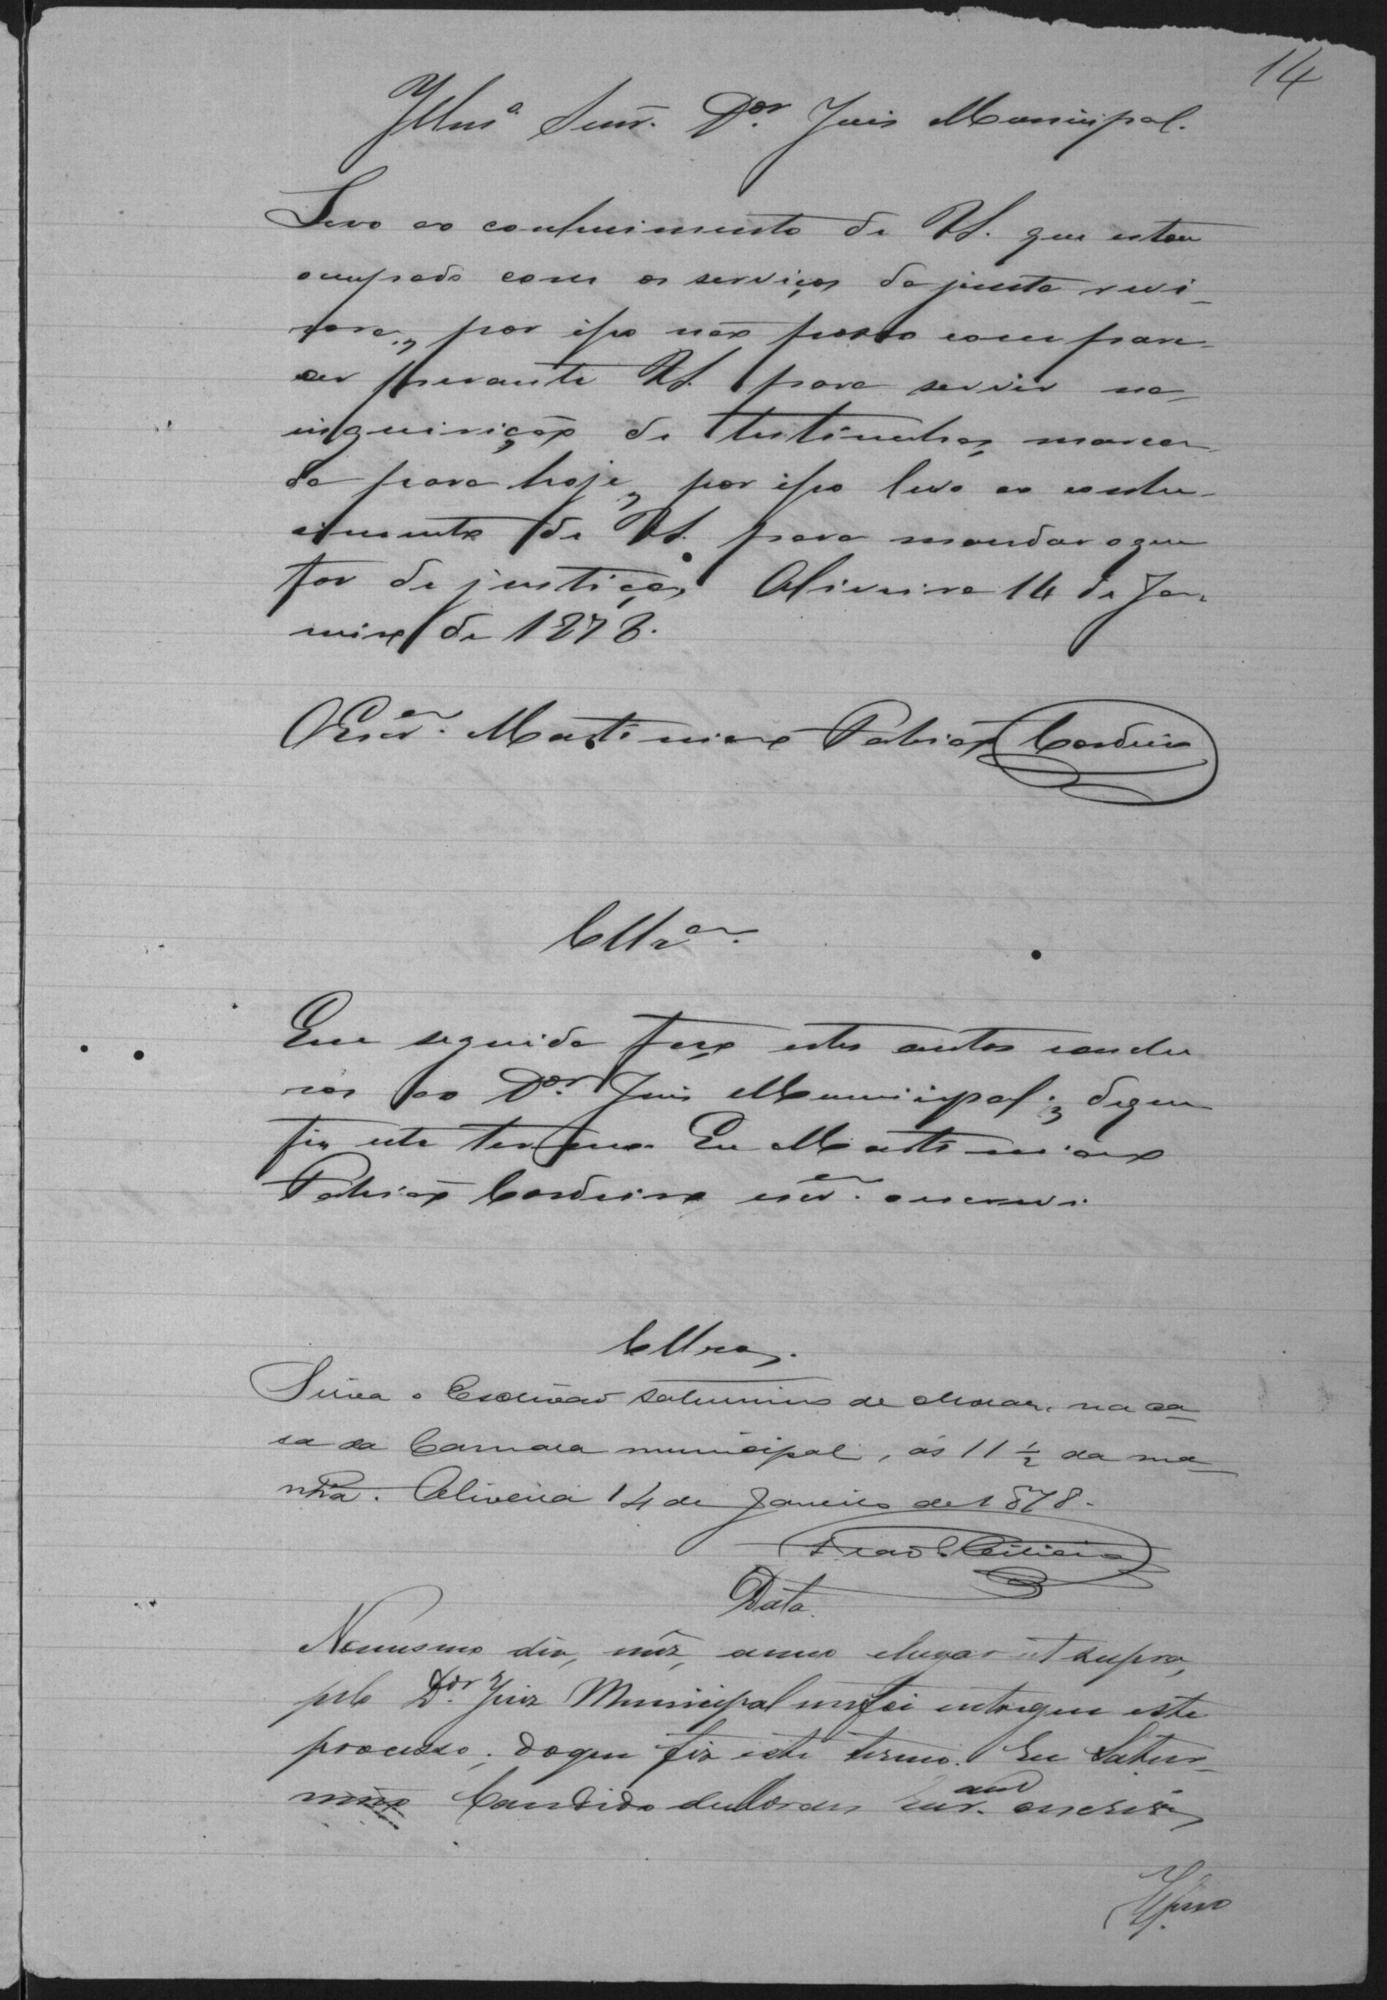 14
Illmº Senr. Dor. Juis Municipal.
Levo ao conhecimento de VS. que estou
occupado com os serviços da junta revi-
sora, por isso não posso compare-
cer perante VS. para servir na
inquirição de testimunhas marca-
da para hoje, por isso levo ao conhe-
cimento de VS. para mandar o que
for de justiça, Oliveira 14 de Ja-
neiro de 1878.
O Escram. Martiniano Fabião Cordeiro
Cllzam.
Em seguida faço estes autos conclu
sos ao Dor. Juis Municipal; de que
fis este termo. Eu Martiniano
Fabião Cordeiro escram. o escrevi.
Cllzos.
Sirva o Escrivão Saturnino de Moraes, na ca-
sa da Camara municipal, ás 11 ½ da ma-
nhã. Oliveira 14 de Janeiro de 1878.
Data.
No mesmo dia, mêz, anno e lugar ut supra,
pelo Dor. Juiz Municipal me foi entregue este
processo; do que fiz este termo. Eu Satur-
nino Candido de Moraes Escram. o escrivi,